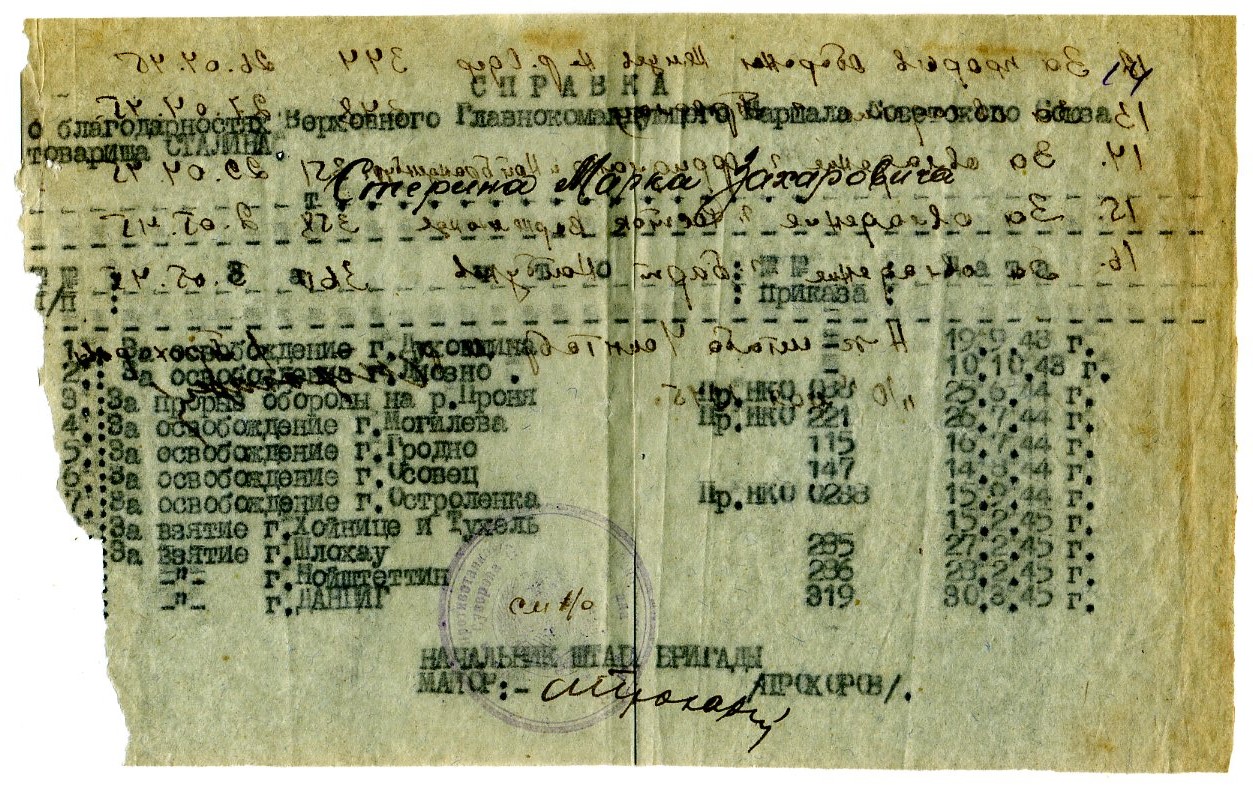 СПРАВКА
о благодарностях Верховного Главнокомандующего Маршала Советского Союза
товарища СТАЛИНА.
т. Стерина Марка Захаровича
№№ : З а ч т о : №№ : Д а т а
п/п : : приказа :
1. За освобождение г.Духовщина - 19.9.43 г.
2. За освобождение г.Лиозно . - 10.10.43 г.
3. За прорыв обороны на р.Проня Пр.НКО 25.6.44 г.
4. За освобождение г.Могилева Пр.НКО 221 26.7.44 г.
5. За освобождение г.Гродно 115 16.7.44 г.
6. За освобождение г.Осовец 147 14.8.44 г.
7. За освобождение г.Остроленка Пр.НКО 0288 15.9.44 г.
За взятие г.Хойнице и Тухель 15.2.45 г.
За взятие г.Шлохау 285 27.2.45 г.
-"- г.Нойштеттин 286 28.2.45 г.
-"- г.ДАНЦИГ 319 30.3.45 г.
НАЧАЛЬНИК ШТАБА БРИГАДЫ
МАЙОР:- /ПРОХОРОВ/.
См н/о
За прорыв обороны немцев на р. Одер 344 26.04.45
13. 27.04.45
14. За овладение 351 29.04.45
15. За овладение г. Росток 358 2.05.45
16. За овладение г. Барт 361 3.05.45
Н-к штаба